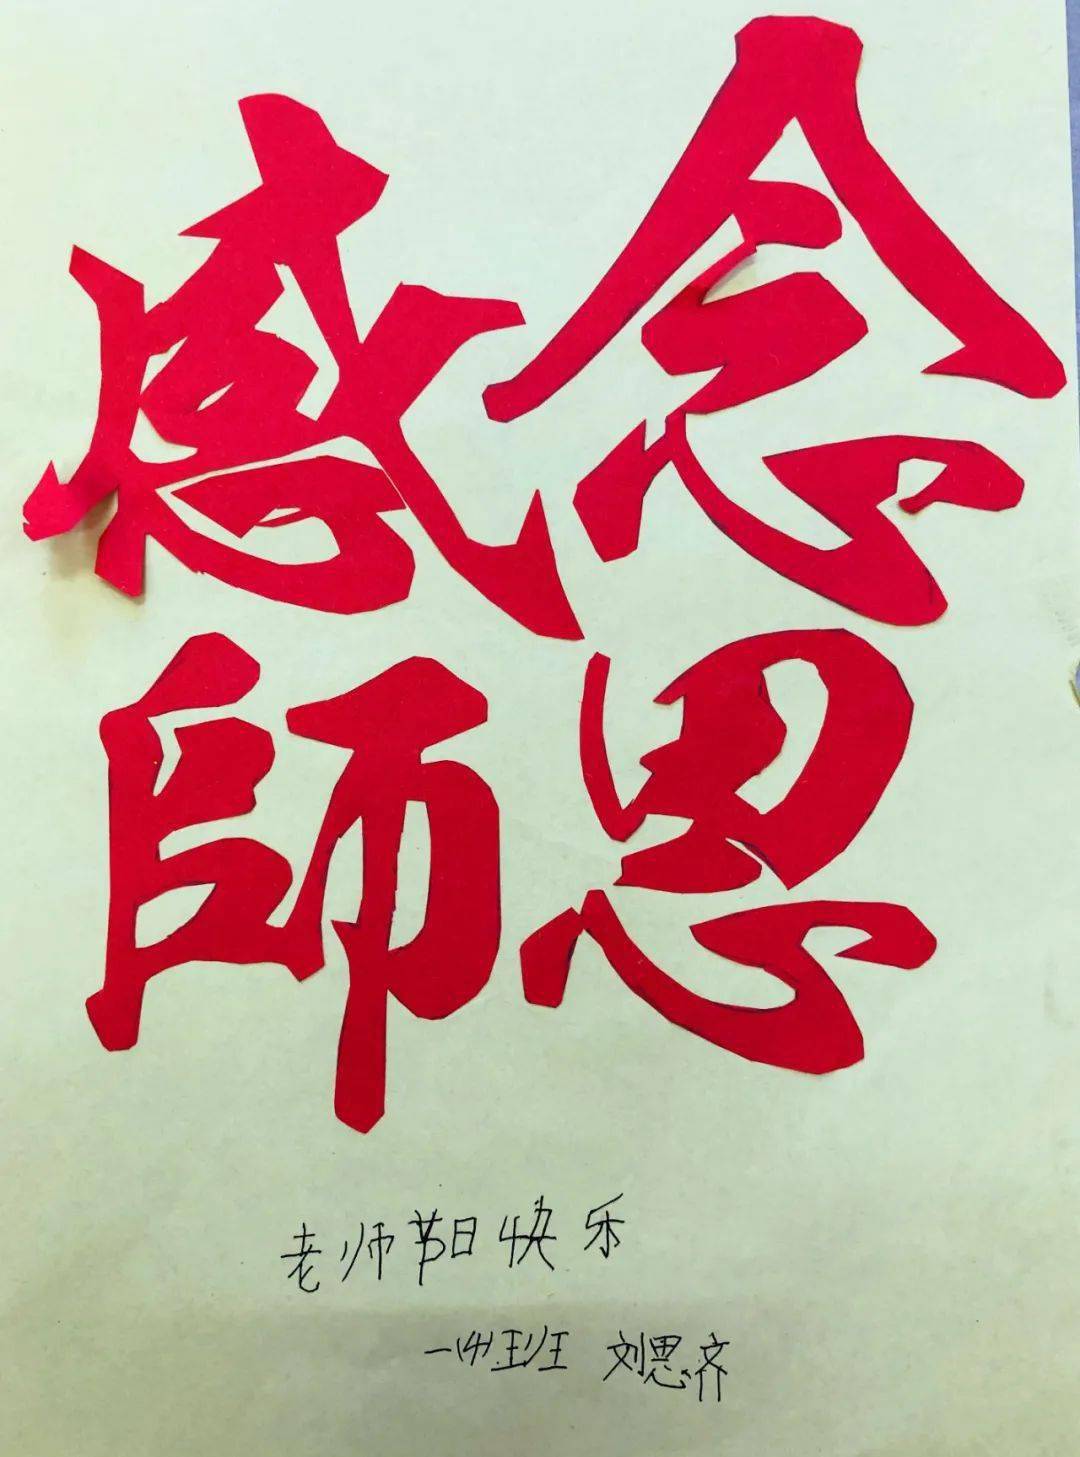 感念
師恩
老师节日快乐
一(4)班 刘思齐